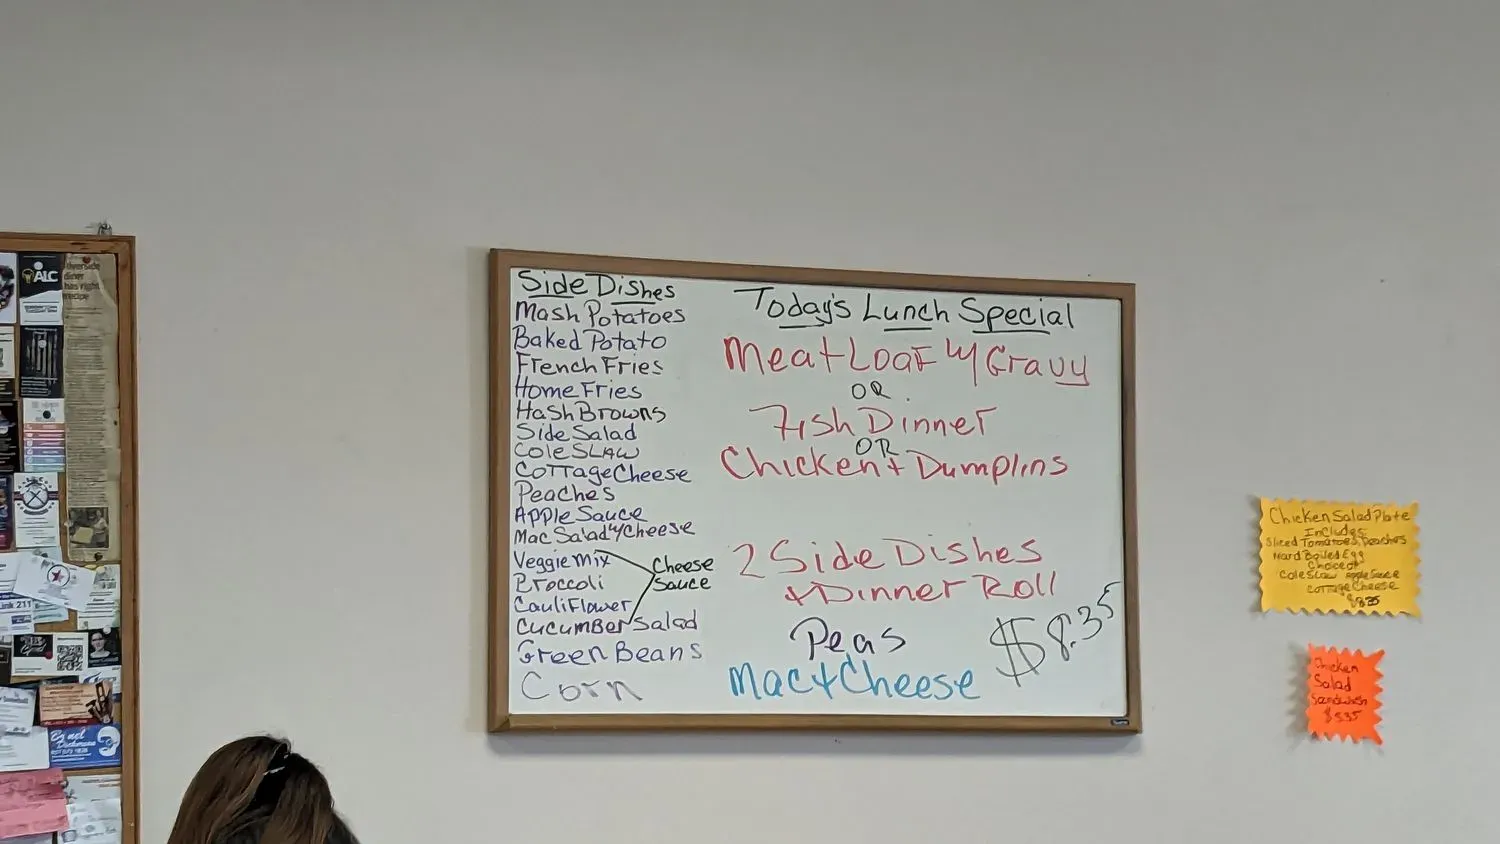 ALC
Riverside
diner
has right
recipe
Link 211
Side Dishes
Mash Potatoes
Baked Potato
French Fries
Home Fries
Hash Browns
Side Salad
Cole Slaw
Cottage Cheese
Peaches
Apple Sauce
Mac Salad w/ Cheese
Veggie Mix
Broccoli
Cauliflower
Cheese
Sauce
Cucumber Salad
Green Beans
Corn
Today's Lunch Special
Meat Loaf w/ Gravy
OR
Fish Dinner
OR
Chicken + Dumplins
2 Side Dishes
+ Dinner Roll
Peas
Mac + Cheese
$8.35
Chicken Salad Plate
Includes:
Sliced Tomatoes, Peaches
Hard Boiled Egg
Choice of
Cole Slaw Apple Sauce
Cottage Cheese
$8.35
Chicken
Salad
Sandwich
$5.35